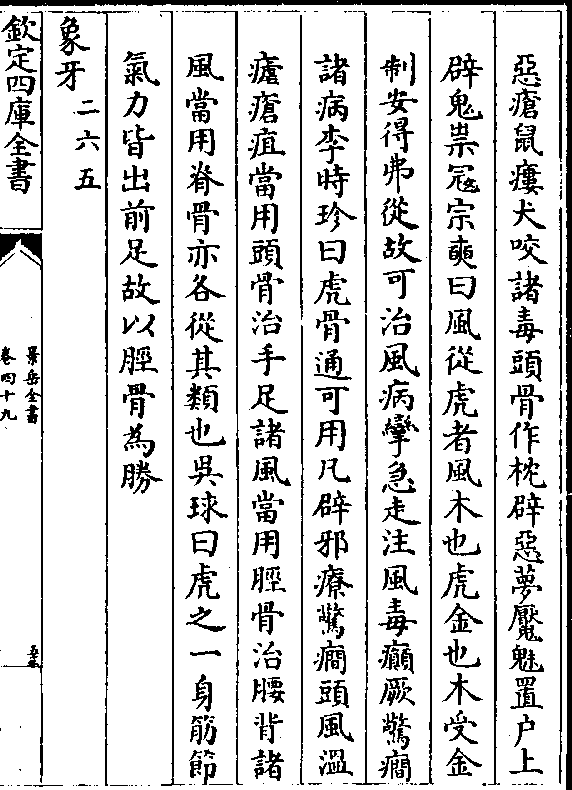 惡瘡鼠瘻犬咬諸毒頭骨作枕辟惡夢魘魅置户上
辟鬼祟冦宗奭曰風從虎者風木也虎金也木受金
制安得弗從故可治風病攣急走注風毒癲厥驚癇
諸病李時珍曰虎骨通可用凡辟邪療驚癇頭風溫
瘧瘡疽當用頭骨治手足諸風當用脛骨治腰背諸
風當用脊骨亦各從其類也吳球曰虎之一身筋節
氣力皆出前足故以脛骨為勝
象牙二六五
欽定四庫全書
景岳全書
卷四十九